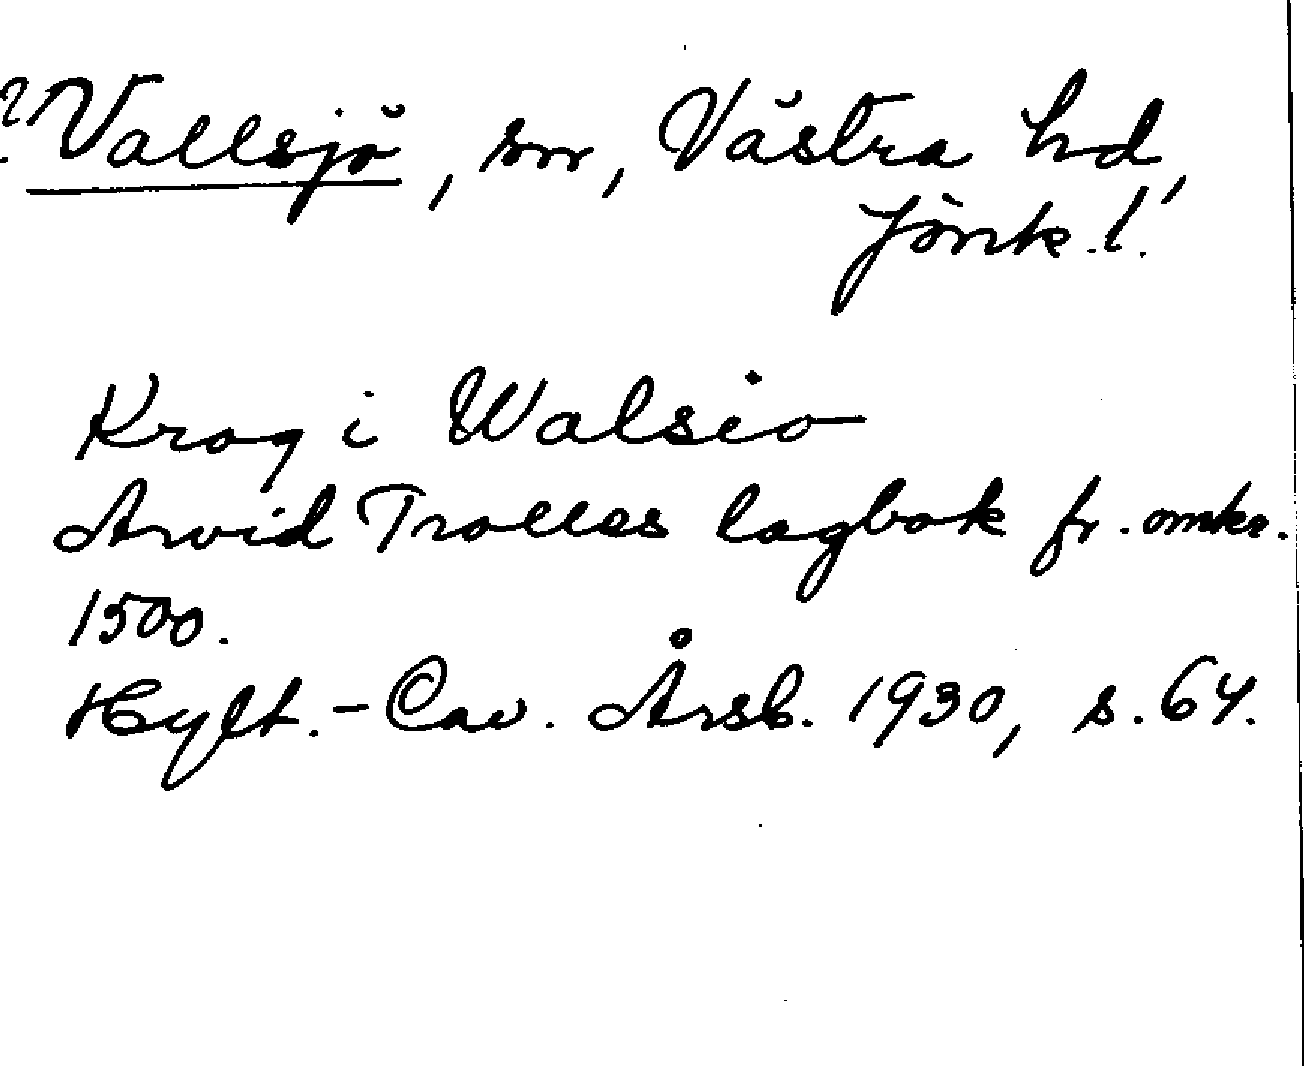 ? Vallsjö, sn, Västra hd,
Jönk. l.
Krog i Walsio
Arvid Trolles lagbok fr. omkr.
1500.
Hylt.-Cav. Årsb. 1930, s. 64.